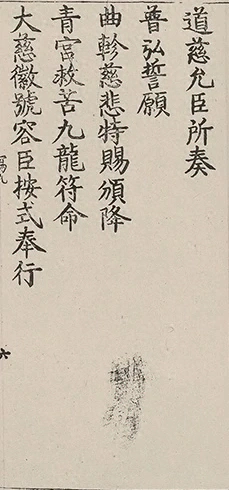 道慈允臣所奏
普弘誓願
曲軫慈悲特賜頒降
青宮救苦九龍符命
大慈徽號容臣按式奉行
六